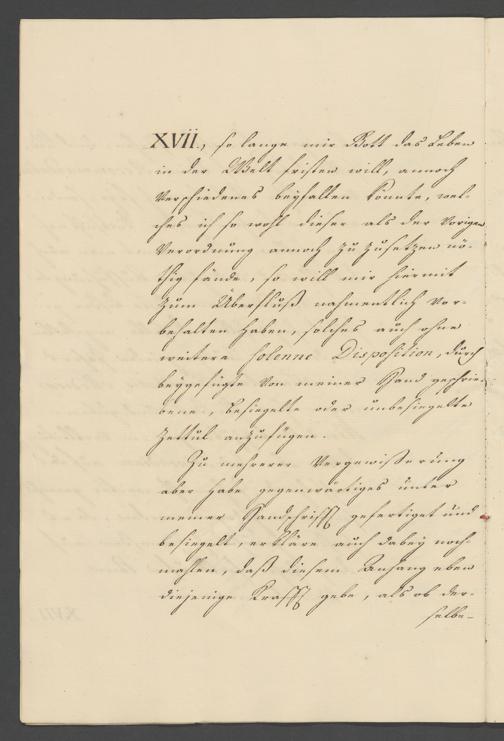 XVII., so lange mir Gott das Leben
in der Welt fristen will, annoch
Verschiedenes beyfallen könnte, wel-
ches ich so wohl dieser als der vorigen
Verordnung annoch zu zusetzen nö-
thig fände, so will mir hiermit
zum Überfluß nahmentlich vor-
behalten haben, solches auch ohne
weitere solenne Disposition, durch
beygefügte von meiner Hand geschrie-
bene, besiegelte oder unbesiegelte
Zettul anzufügen.
Zu mehrerer Vergewisserung
aber habe gegenwärtiges unter
meiner Handschrifft gefertiget und
besiegelt, erkläre auch dabey noch-
mahlen, daß diesem Anhang eben
diejenige Krafft gebe, als ob der-
selbe-